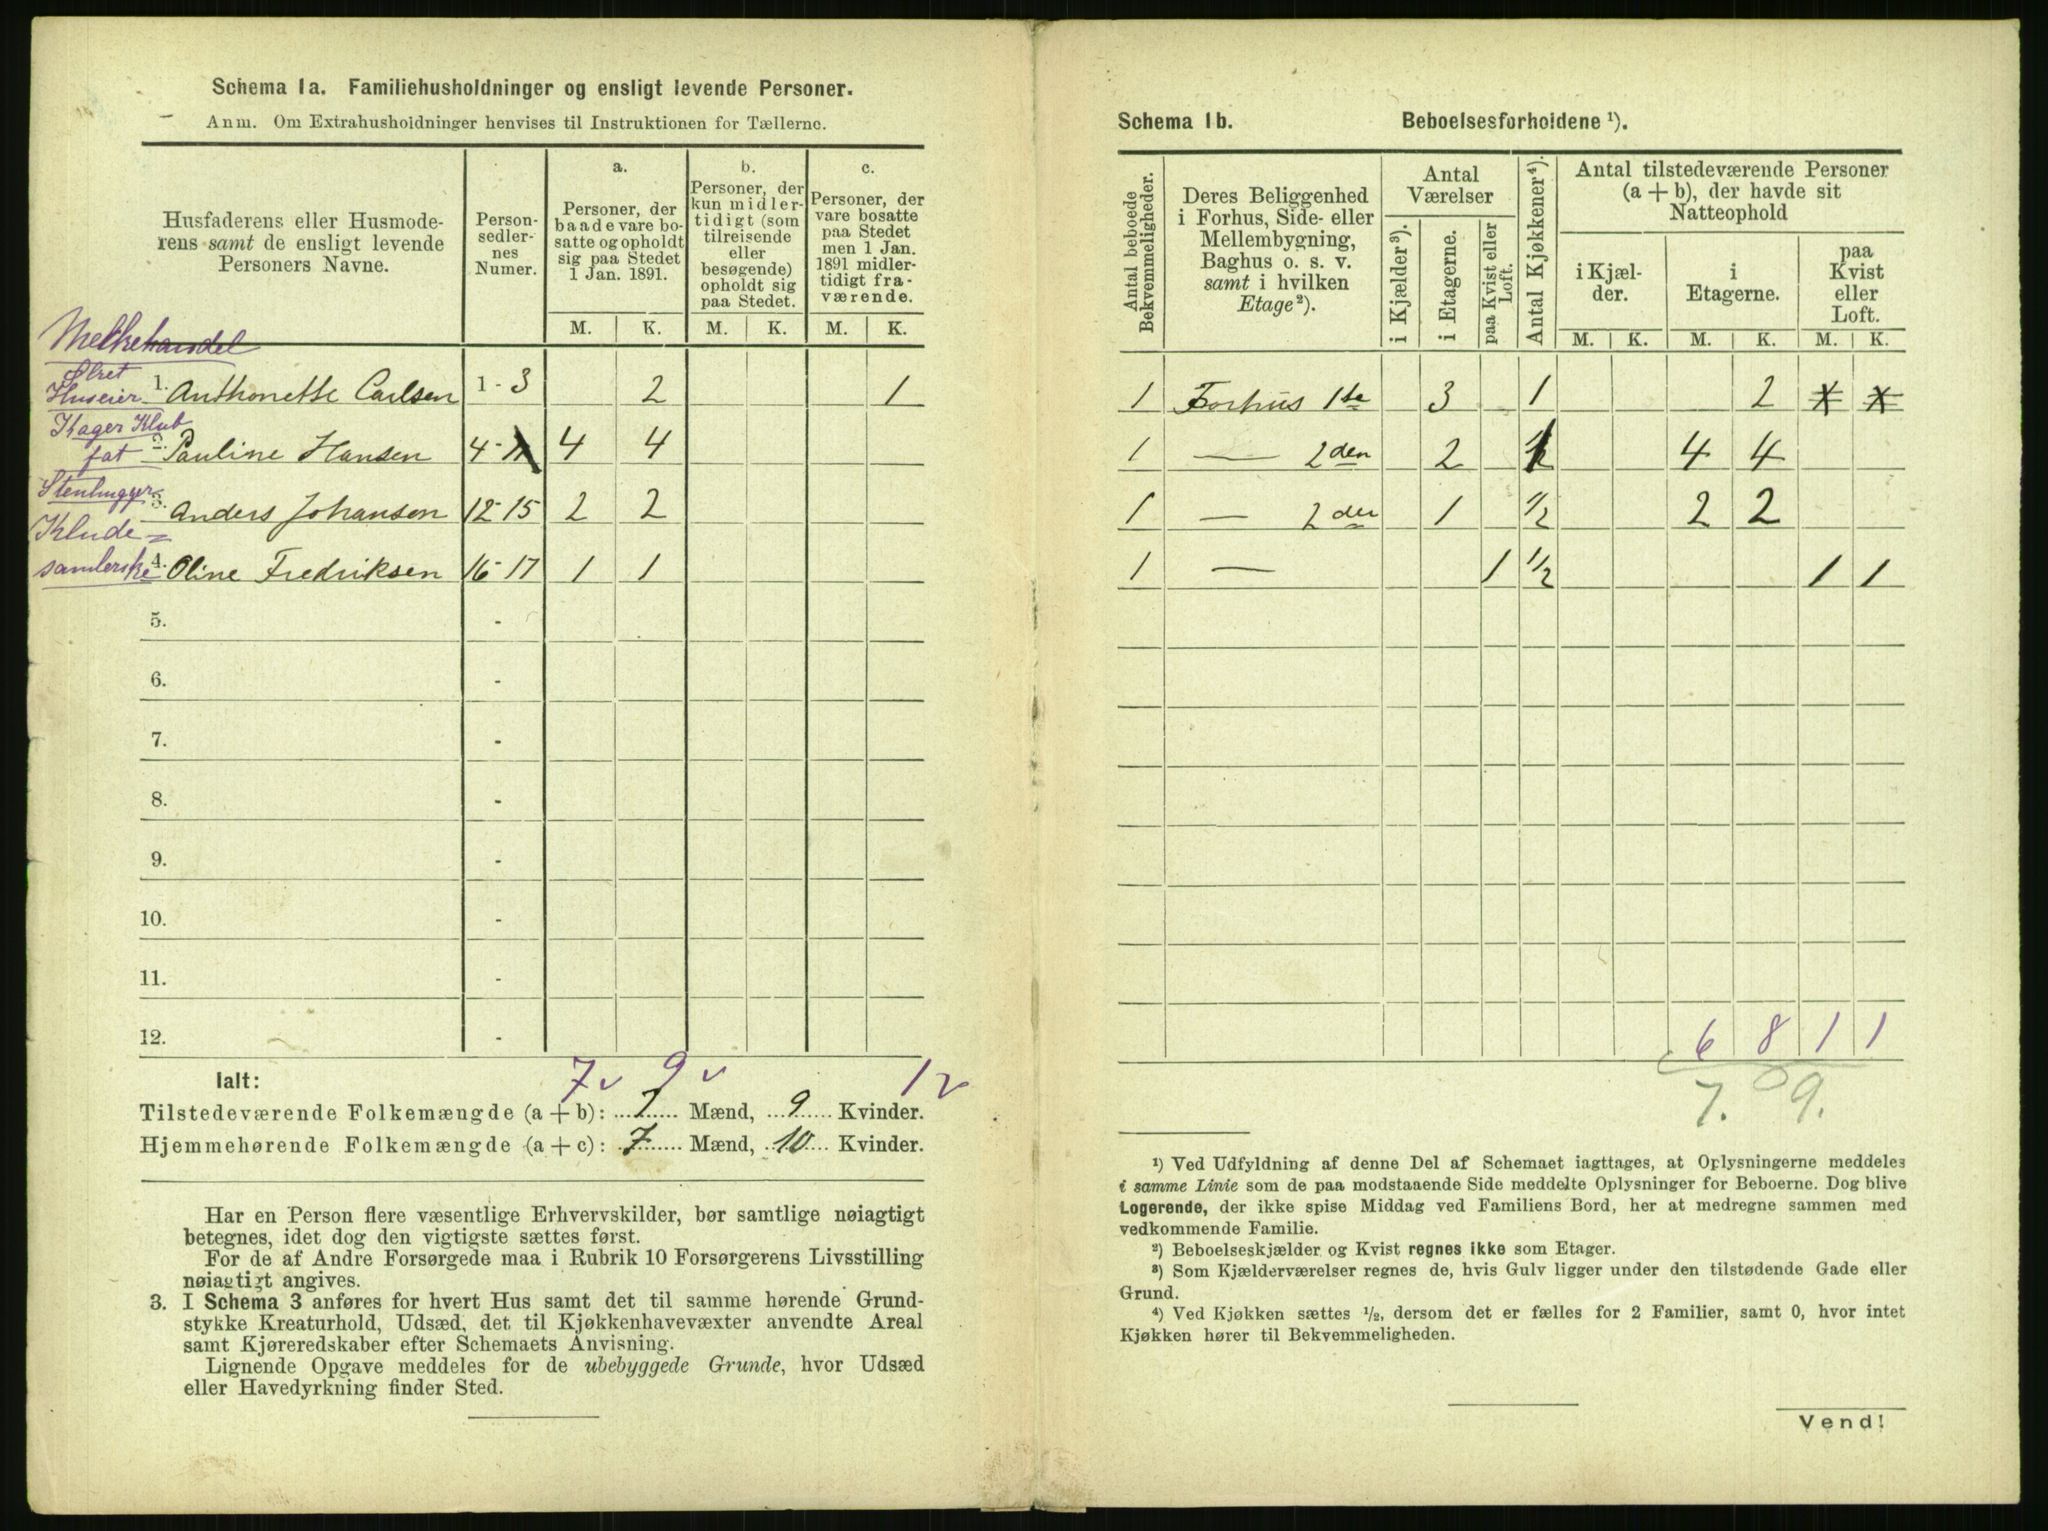 Schema 1a. Familiehusholdninger og ensligt levende Personer.
Anm. Om Extrahusholdninger henvises til Instruktionen for Tællerne.
Husfaderens eller Husmode-
rens samt de ensligt levende
Personers Navne.
Person-
sedler-
nes
Numer.
a.
Personer, der
baade vare bo-
satte og opholdt
sig paa Stedet
1 Jan. 1891.
b.
Personer, der
kun midler-
tidigt (som
tilreisende
eller
besøgende)
opholdt sig
paa Stedet.
c.
Personer, der
vare bosatte
paa Stedet
men 1 Jan.
1891 midler-
tidigt fra-
værende.
M. K. M. K. M. K.
Melkehandel
Huseier 1. Anthonette Carlsen 1-3 2 1
Kager Klub
fat 2. Pauline Hansen 4-11 4 4
Stenhugger 3. Anders Johansen 12-15 2 2
Klude-
samlerske 4. Oline Fredriksen 16-17 1 1
5. -
6. -
7. -
8. -
9. -
10. -
11. -
12. -
Ialt: 7 v 9 v 1 v
Tilstedeværende Folkemængde (a + b): 7 Mænd, 9 Kvinder.
Hjemmehørende Folkemængde (a + c): 7 Mænd, 10 Kvinder.
Har en Person flere væsentlige Erhvervskilder, bør samtlige nøiagtigt
betegnes, idet dog den vigtigste sættes først.
For de af Andre Forsørgede maa i Rubrik 10 Forsørgerens Livsstilling
nøiagtigt angives.
3. I Schema 3 anføres for hvert Hus samt det til samme hørende Grund-
stykke Kreaturhold, Udsæd, det til Kjøkkenhavevæxter anvendte Areal
samt Kjøreredskaber efter Schemaets Anvisning.
Lignende Opgave meddeles for de ubebyggede Grunde, hvor Udsæd
eller Havedyrkning finder Sted.
Schema 1b. Beboelsesforholdene ¹).
Antal beboede
Bekvemmeligheder.
Deres Beliggenhed
i Forhus, Side- eller
Mellembygning,
Baghus o. s. v.
samt i hvilken
Etage²).
Antal
Værelser
i Kjælder³).
i Etagerne.
paa Kvist eller
Loft.
Antal Kjøkkener⁴).
Antal tilstedeværende Personer
(a + b), der havde sit
Natteophold
i Kjæl-
der.
i
Etagerne.
paa
Kvist
eller
Loft.
M. K. M. K. M. K.
1 Forhus 1ste 3 1 2
1 — 2den 2 1/2 4 4
1 — 2den 1 1/2 2 2
1 — 1 1/2 1 1
6 8 1 1
7. 9.
¹) Ved Udfyldning af denne Del af Schemaet iagttages, at Oplysningerne meddeles
i samme Linie som de paa modstaaende Side meddelte Oplysninger for Beboerne. Dog blive
Logerende, der ikke spise Middag ved Familiens Bord, her at medregne sammen med
vedkommende Familie.
²) Beboelseskjælder og Kvist regnes ikke som Etager.
³) Som Kjælderværelser regnes de, hvis Gulv ligger under den tilstødende Gade eller
Grund.
⁴) Ved Kjøkken sættes ¹/₂, dersom det er fælles for 2 Familier, samt 0, hvor intet
Kjøkken hører til Bekvemmeligheden.
Vend!